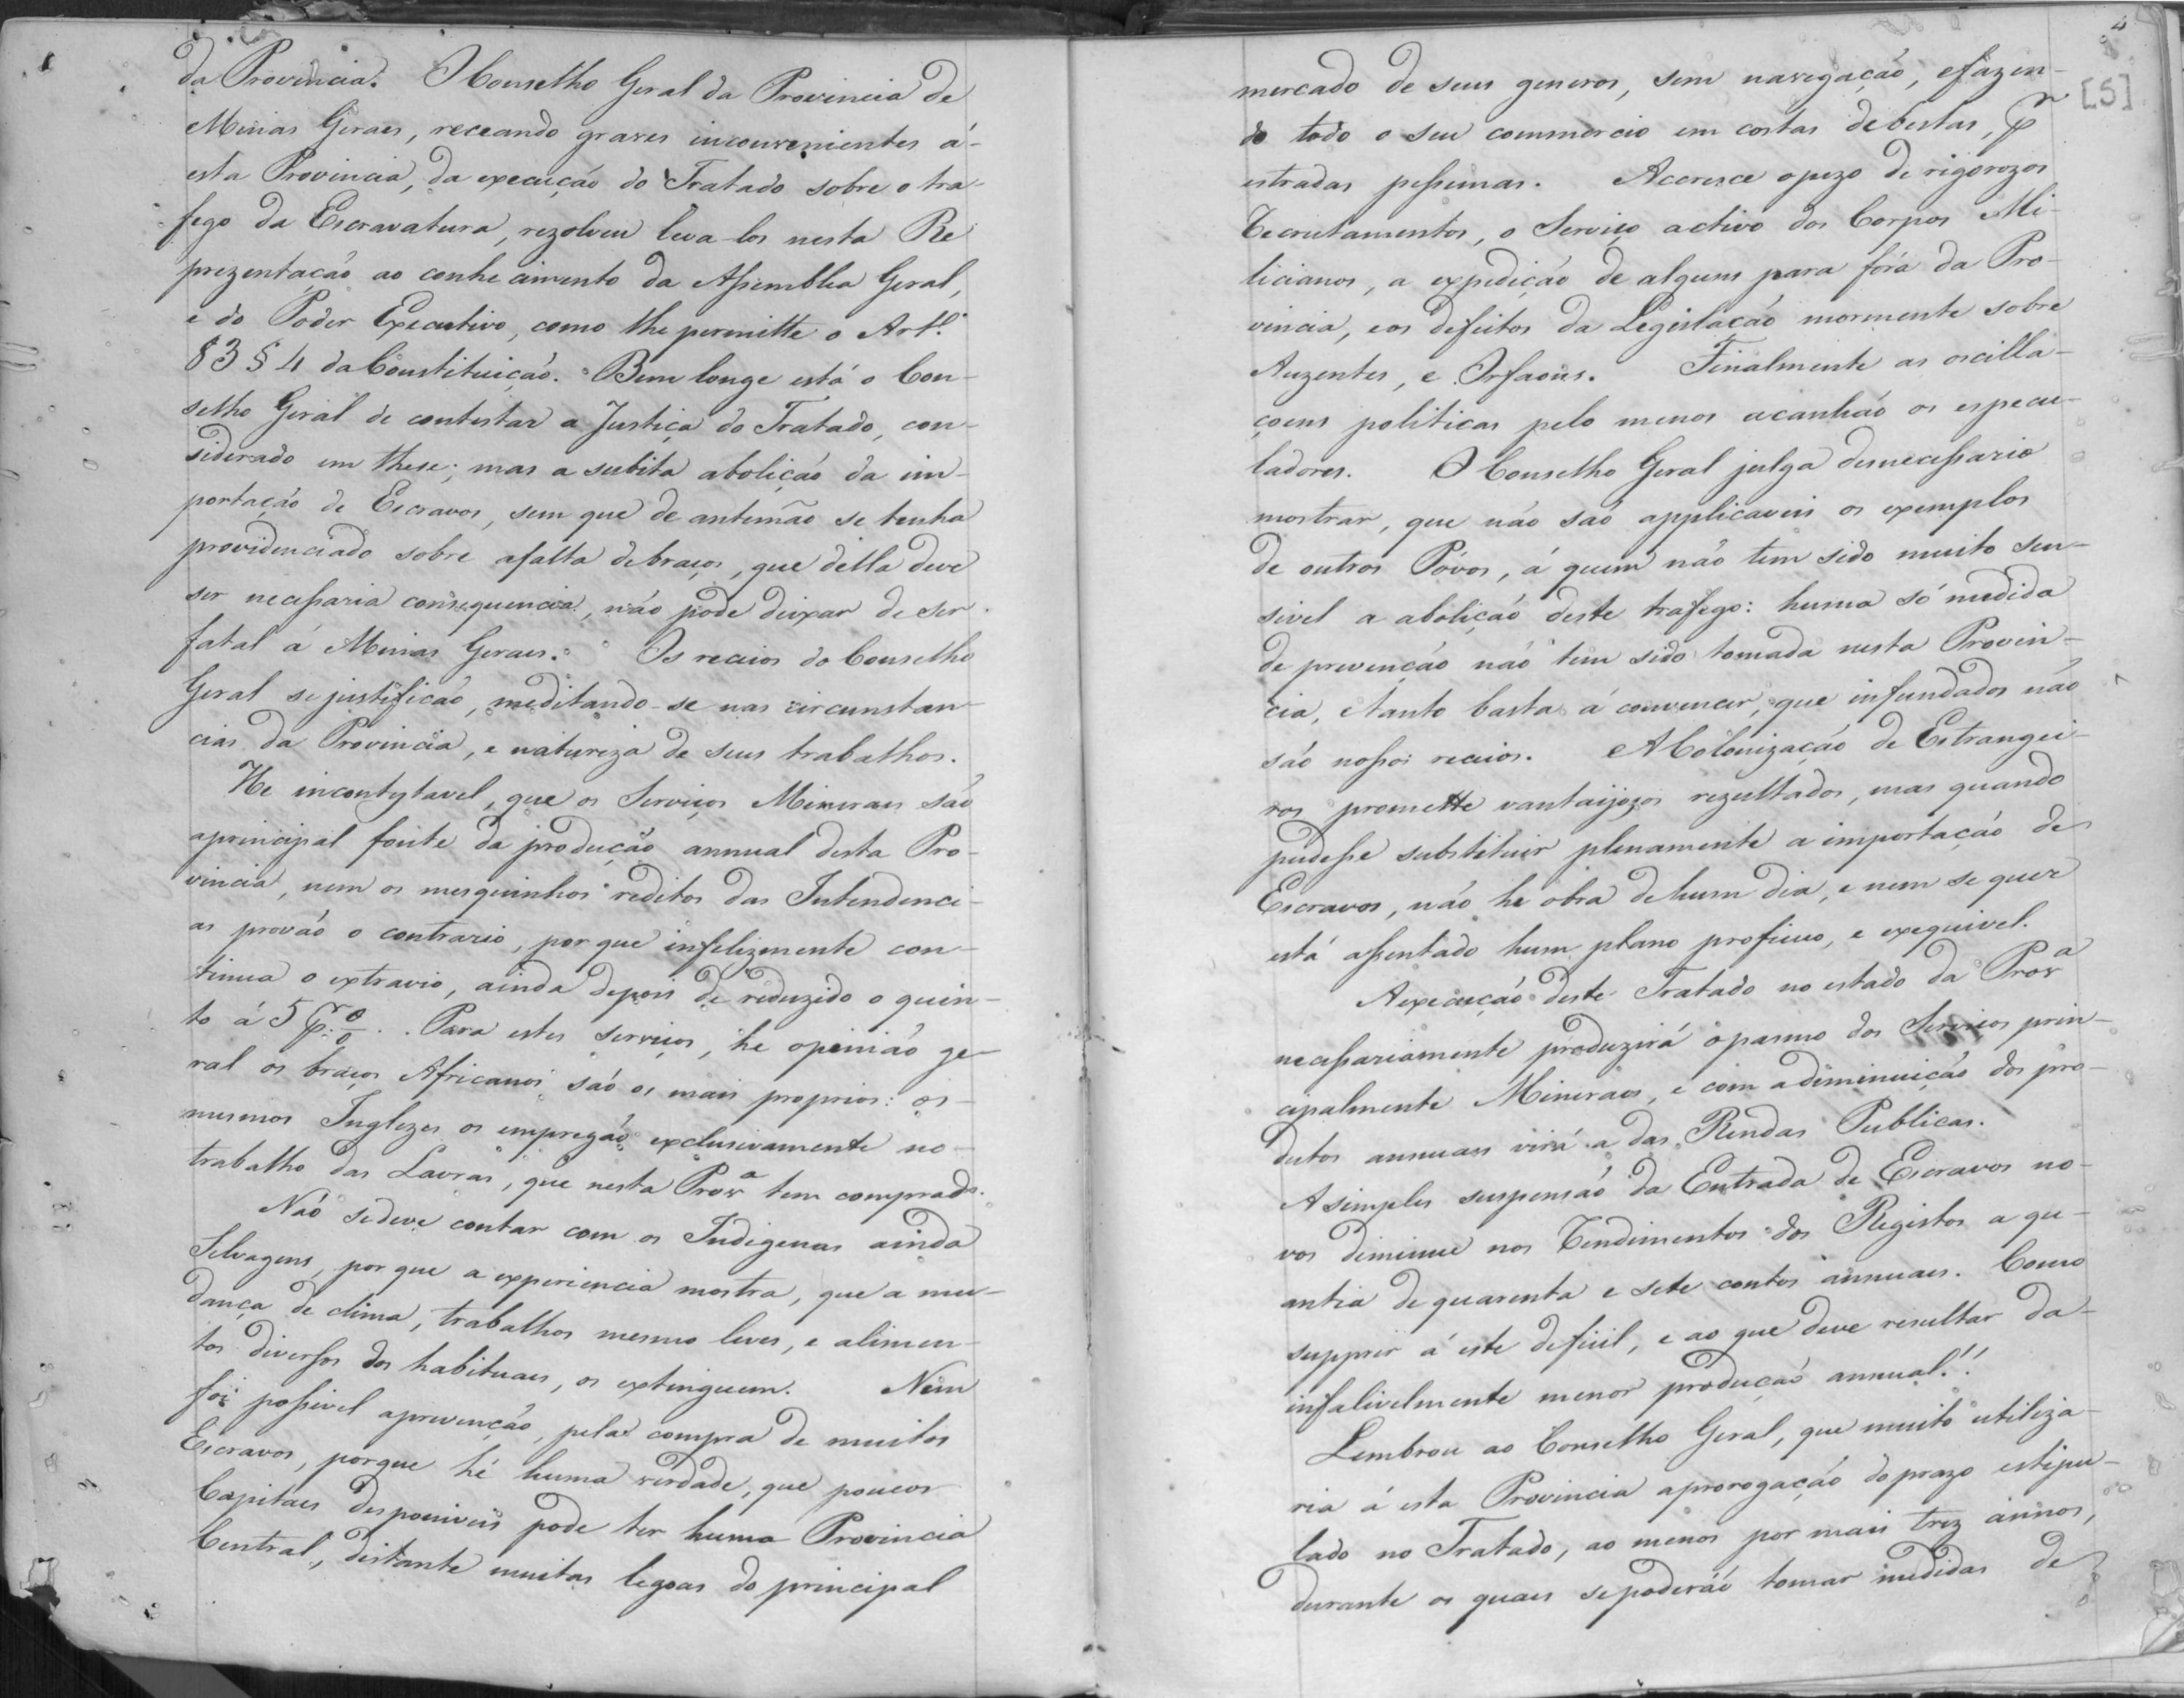 da Provincia. O Conselho Geral da Provincia de
Minas Geraes, receando graves inconvenientes á-
esta Provincia, da execução do Tratado sobre o tra-
fego da Escravatura, rezolveu leva-los nesta Re
prezentação ao conhecimento da Assemblea Geral,
e do Poder Executivo, como lhe permitte o Art.º
83 § 4 da Constituição. Bem longe está o Con-
selho Geral de contestar a Justiça do Tratado, con-
siderado em these; mas a subita abolição da im-
portação de Escravos, sem que de antemão se tenha
providenciado sobre afalta debraços, que della deve
ser necessaria consequencia, não pode deixar de ser
fatal á Minas Geraes. Os receios do Conselho
Geral se justificão, meditando-se nas circunstan-
cias da Provincia, e natureza de seus trabalhos.
He incontestavel, que os Serviços Mineraes são
aprincipal fonte da produção annual desta Pro-
vincia, nem os mesquinhos reditos das Intendenci-
as provão o contrario, por que infelizmente con-
tinua o extravio, ainda depois de reduzido o quin-
to á 5 p.r %. Para estes serviços, he opinião ge-
ral os braços Africanos são os mais proprios: os-
mesmos Inglezes os empregão exclusivamente no-
trabalho das Lavras, que nesta Prov.a tem comprado.
Não sedeve contar com os Indigenas ainda
Selvagens, por que a experiencia mostra, que a mu-
dança de clima, trabalhos mesmo leves, e alimen-
tos diversos dos habituaes, os extinguem. Nem
foi possivel aprevenção, pela compra de muitos
Escravos, porque hé huma verdade, que poucos
Capitaes desponiveis pode ter huma Provincia
Central, distante muitas legoas do principal
4
[5]
mercado de seus generos, sem navegação, efazen-
do todo o seu commercio em costas debestas, p.r
estradas pessimas. Accresce opezo de rigorozos
Recrutamentos, o Serviço activo dos Corpos Mi-
licianos, a expedição de alguns para fóra da Pro-
vincia, eos defeitos da Legislação mormente sobre
Auzentes, e Orfaons. Finalmente as oscilla-
çoens politicas pelo menos acanhão os especu-
ladores. O Conselho Geral julga desnecessario
mostrar, que não são applicaveis os exemplos
de outros Póvos, á quem não tem sido muito sen-
sivel a abolição deste trafego: huma só medida
de prevenção não tem sido tomada nesta Provin-
cia, etanto basta á convencer, que infundados não
são nossos receios. AColonização de Estrangei-
ros promette vantaijozos rezultados, mas quando
pudesse substituir plenamente a importação de
Escravos, não he obra dehum dia, e nem se quer
está assentado hum plano proficuo, e exequivel.
Aexecução deste Tratado no estado da Prov.a
necessariamente produzirá opasmo dos Serviços prin-
cipalmente Mineraes, e com adiminuição dos pro-
dutos annuaes virá a das Rendas Publicas.
Asimples suspensão da Entrada de Escravos no-
vos diminue nos Rendimentos dos Registos a qu-
antia dequarenta e sete contos annuaes. Como
supprir á este defiit, e ao que deve resultar da-
infalivelmente menor produção annual!!
Lembrou ao Conselho Geral, que muito utiliza-
ria á esta Provincia aprorogação doprazo estipu-
lado no Tratado, ao menos por mais trez annos,
durante os quaes sepoderáõ tomar medidas de